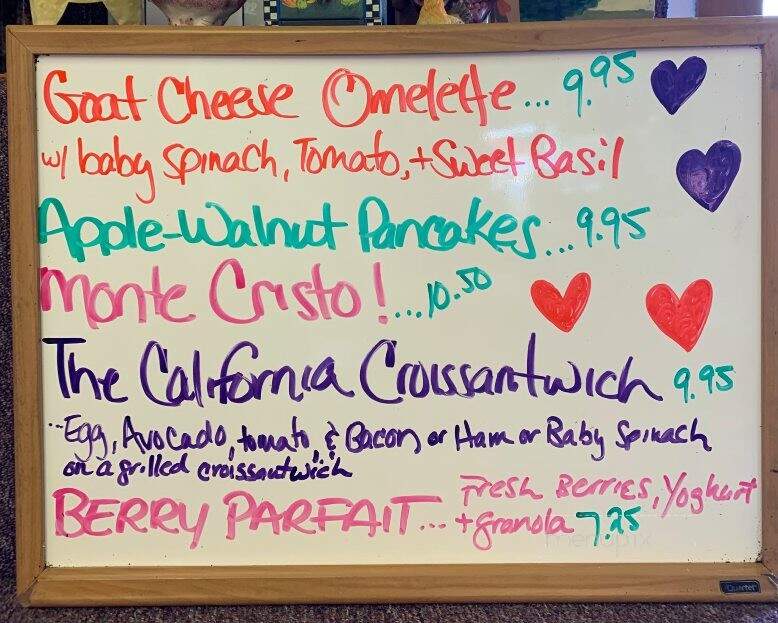 Goat Cheese Omelette... 9.95
w/ baby spinach, Tomato, + Sweet Basil
Apple-Walnut Pancakes... 9.95
Monte Cristo!... 10.50
The California Croissantwich 9.95
...Egg, Avocado, tomato, & Bacon or Ham or Baby Spinach
on a grilled croissantwich
BERRY PARFAIT... Fresh Berries, Yoghurt
+ granola 7.25
Quartet